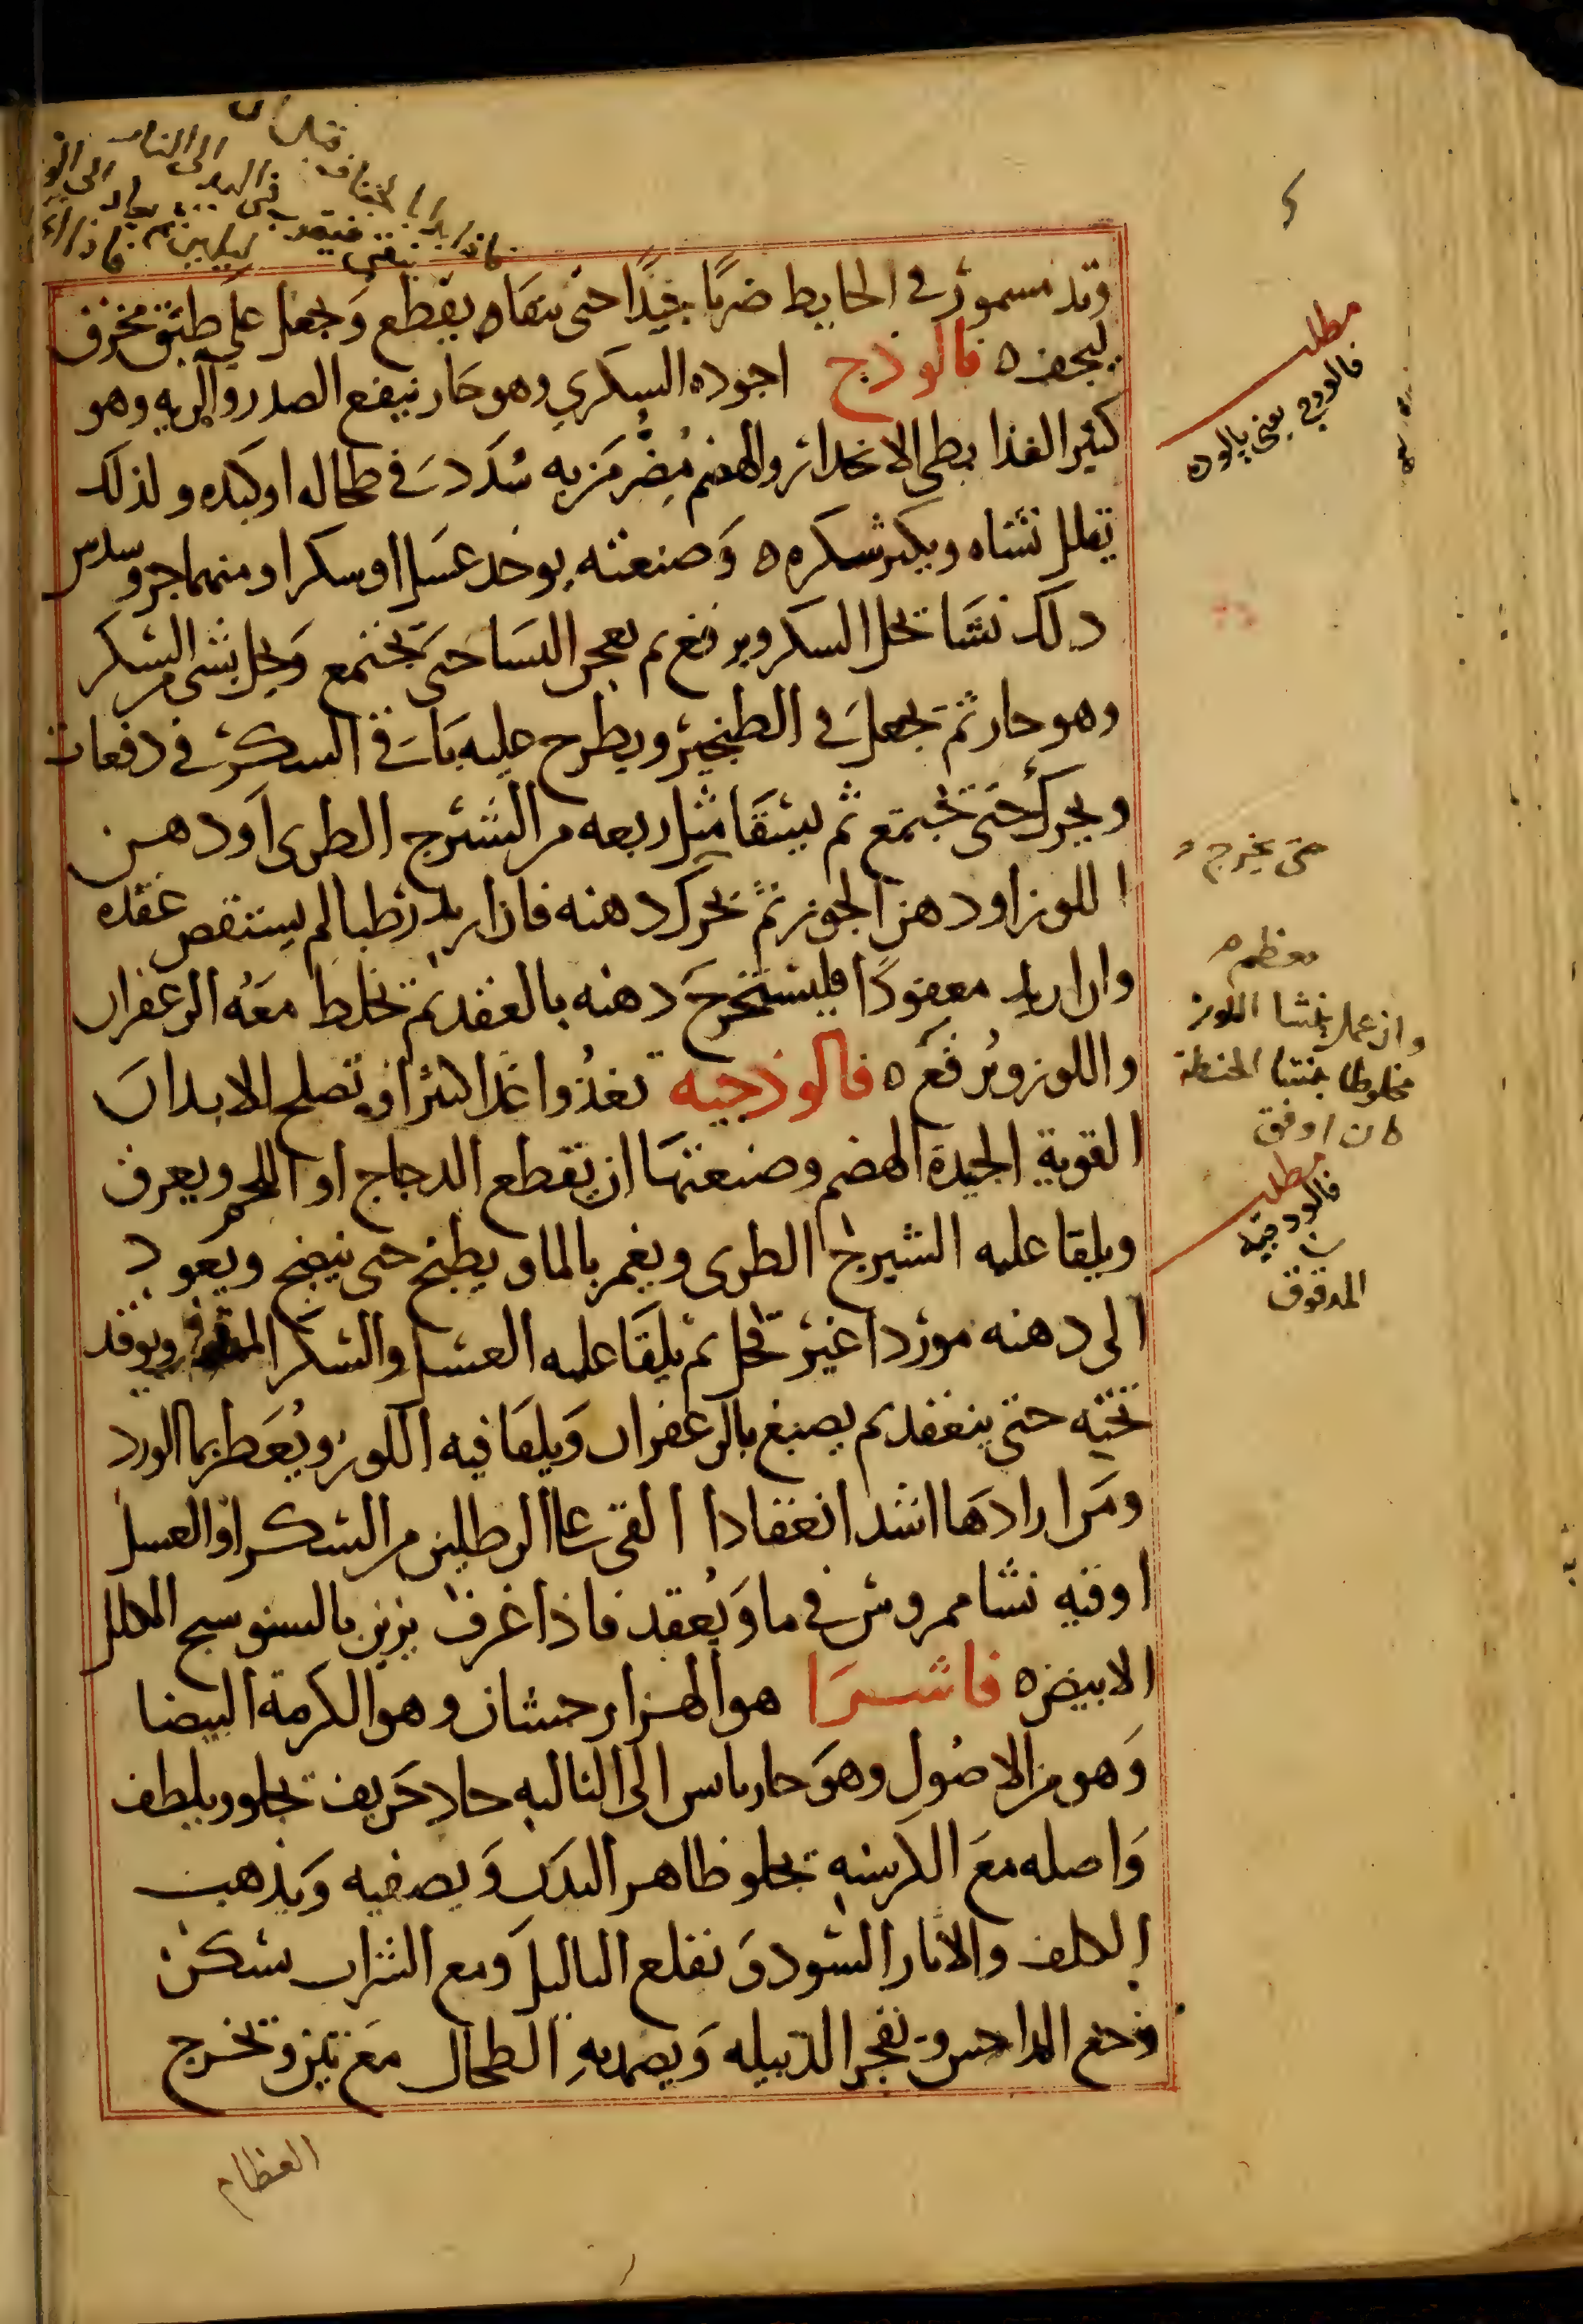 وتد مسمور في الحايط ضربًا جيدًا حتى يتقاه يقطع وَيجعل علي طبق مخزف
ليجف ه فالوذج اجوده السكري وهو حار ينفع الصدر والريه وهو
كثير الغذا بطى الانحدار والهضم مُضِر مَن به سُدَد في طحاله او كبده ولذلك
يقلل نشاه ويكثر سكره ه وَصنعته يوخد عسَلا او سكرا ومنهما جزو سدس
ذلك نشا يحل السكر ويرفع ثم يعجن النشا حتى يجتمع وَيحل بشي من السكر
وهو حار ثم يجعل في الطنجير ويطرح عليه باقي السكر في دفعات
ويحرك حتى يجتمع ثم يسقا مثل ربعه من الشيرج الطري او دهن
اللوز او دهن الجوز ثم يحرك دهنه فان اريد رطبا لم يستقص عقده
وان اريد معقودًا فليستخرج دهنه بالعقد ثم يخلط معه الزعفران
واللوز ويُرفع ه فالوذجيه تغذوا غذا كثرا وتصلح الابدان
القوية الجيدة الهضم وصنعتها ان يقطع الدجاج او اللحم ويعرق
ويلقا عليه الشيرج الطرى ويغمر بالما ويطبخ حتى ينضج ويعود
الى دهنه موردا غير قحل ثم يلقا عليه العسل والسكر ويوقد
تحته حتى ينعقد ثم يصبغ بالزعفران وَيلقا فيه اللوز ويُعَطر بما الورد
ومن ارادها اشد انعقادا القى علي الرطلين من السكر او العسل
اوقيه نشا ممروس في ما وَيُعقد فاذا غرف يزين بالسنوسج المكلل
الابيض ه فاشرا هو الهزارحشان وهو الكرمة البيضا
وَهو من الاصُول وهوَ حار يابس الى الثالثه حاد حَريف يجلو ويلطف
وَاصله معَ الكرسنه يجلو ظاهر البدن وَيصفيه وَيذهب
الكلف والاثار السود وَيقلع الثاليل وَمع الشراب يسكن
وجع الداحس ويفجر الدبيله وَيضمد به الطحال مَع تين ويخرج
العظام
مطلب
فالودج يعنى پالوده
حتى يخرج
معظمه
وان عمل بنشا اللوز
مخلوطا بنشا الحنطة
كان اوفق
مطلب
فالودجيه
المدقوق